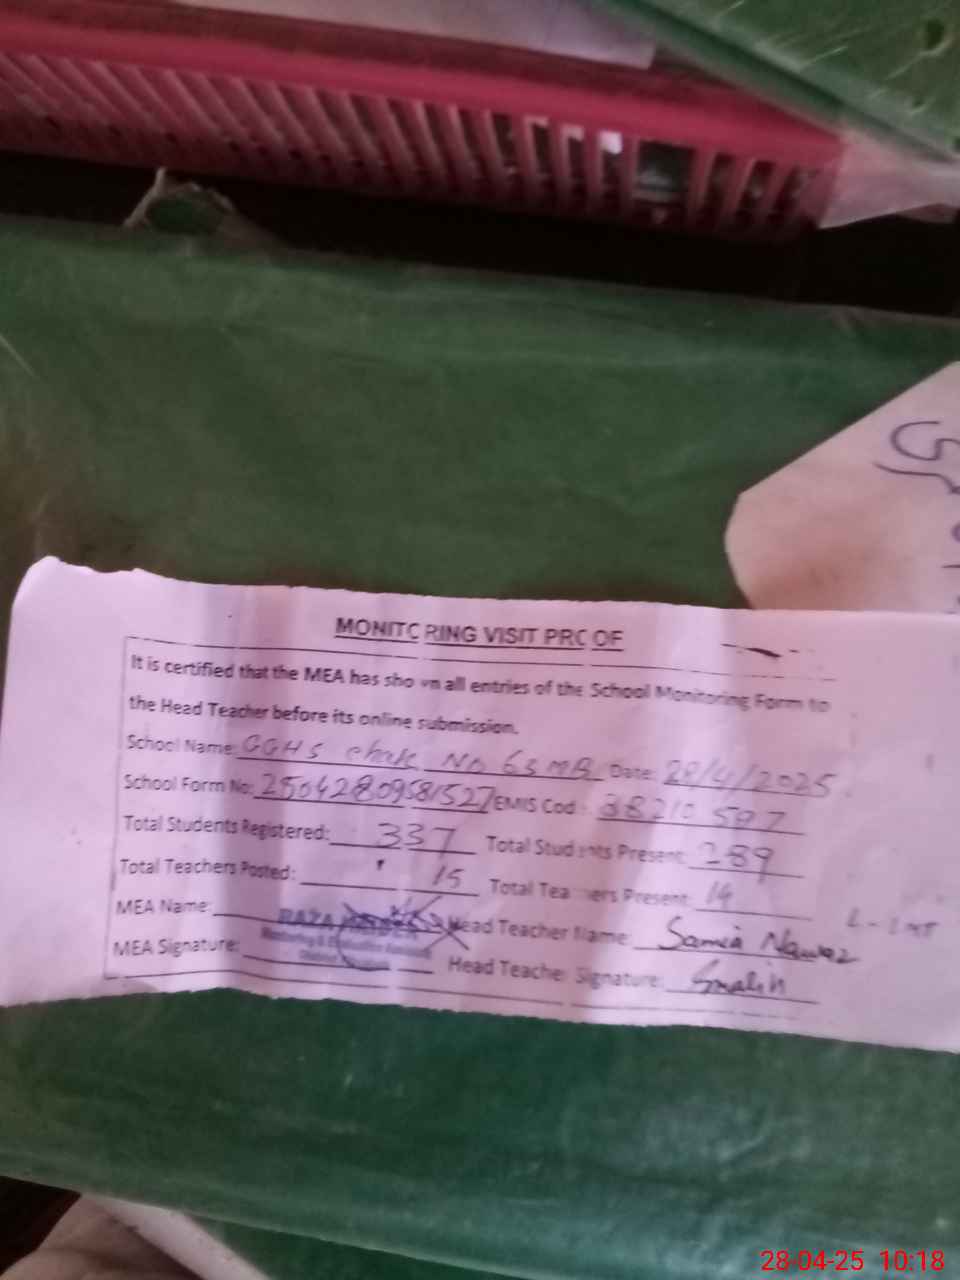 MONITORING VISIT PROOF
It is certified that the MEA has shown all entries of the School Monitoring Form to
the Head Teacher before its online submission.
School Name: GGHS chak No 63 MB Date: 28/4/2025
School Form No: 25042809581527 EMIS Cod: 38210597
Total Students Registered: 337 Total Students Present: 289
Total Teachers Posted: 15 Total Teachers Present: 14
MEA Name: RAZA Head Teacher Name: Samia Nawaz
Monitoring & Evaluation Assistant
MEA Signature: Head Teacher Signature:
District
28-04-25 10:18